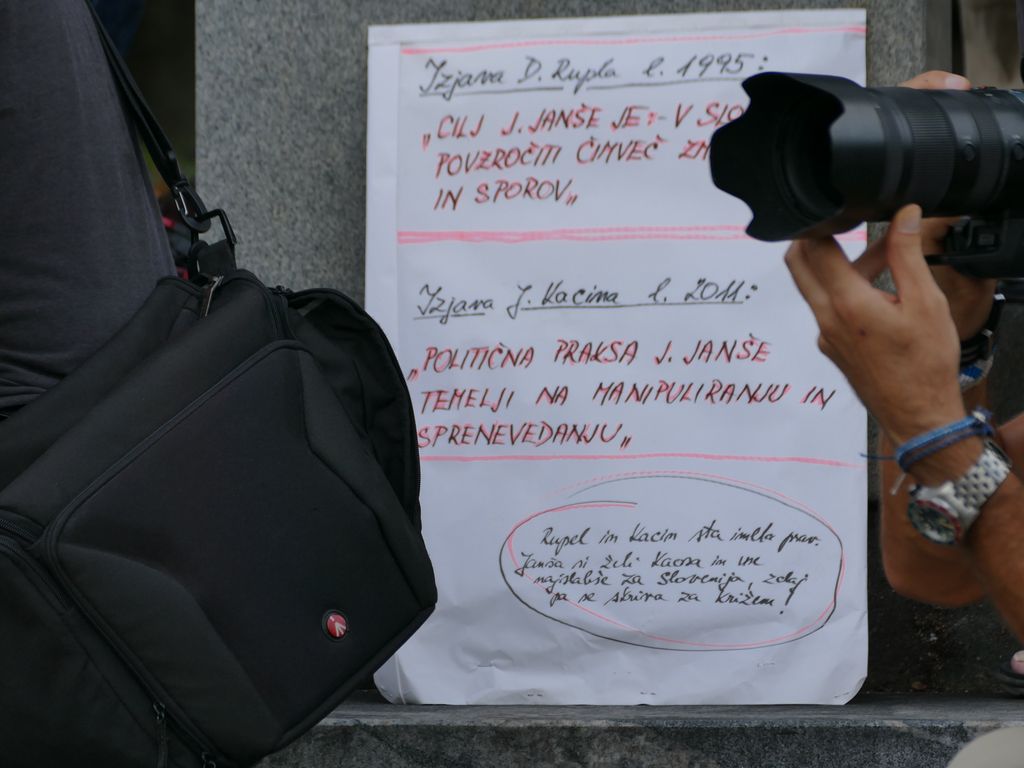 Izjava D. Rupla l. 1995:
„CILJ J. JANŠE JE:- V SLO
POVZROČITI ČIMVEČ ZM
IN SPOROV„
Izjava J. Kacina l. 2011:
„POLITIČNA PRAKSA J. JANŠE
TEMELJI NA MANIPULIRANJU IN
SPRENEVEDANJU„
Rupel in Kacin sta imela prav.
Janša si želi kaosa in vse
najslabše za Slovenijo, zdaj
pa se skriva za križem!